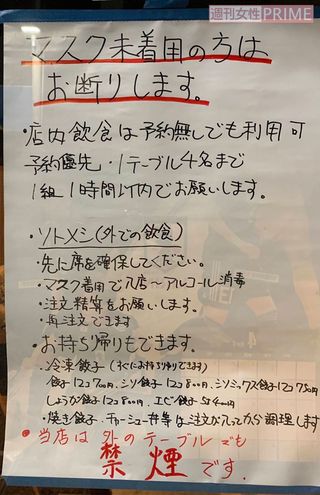 週刊女性PRIME
マスク未着用の方は
お断りします。
・店内飲食は予約無しでも利用可
予約優先・1テーブル4名まで
1組1時間以内でお願いします。
・ソトメシ(外での飲食)
・先に席を確保してください。
・マスク着用で入店〜アルコール消毒
・注文精算をお願いします。
・再注文できます
・お持ち帰りもできます。
・冷凍餃子(すぐにお持ち帰りできます)
餃子12コ700円、シソ餃子12コ800円、シソミックス餃子12コ750円
しょうが餃子12コ800円、エビ餃子5コ400円
・焼き餃子、チャーシュー丼等は注文が入ってから調理します
・当店は外のテーブルでも
禁煙です.